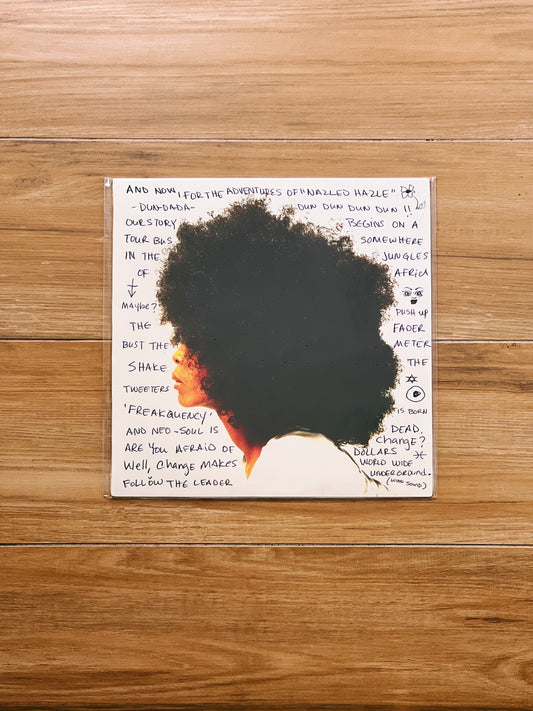 AND NOW, FOR THE ADVENTURES OF "NAZLED HAZLE"
-DUN-DADA- DUN DUN DUN DUN !!
OUR STORY BEGINS ON A
TOUR BUS SOMEWHERE
IN THE JUNGLES
OF AFRICA
MAYBE? PUSH UP
THE FADER
BUST THE METER
SHAKE THE
TWEETERS
'FREAKQUENCY' IS BORN
AND NEO-SOUL IS DEAD.
ARE YOU AFRAID OF CHANGE?
Well, CHANGE MAKES DOLLARS
FOLLOW THE LEADER WORLD WIDE
UNDERGROUND.